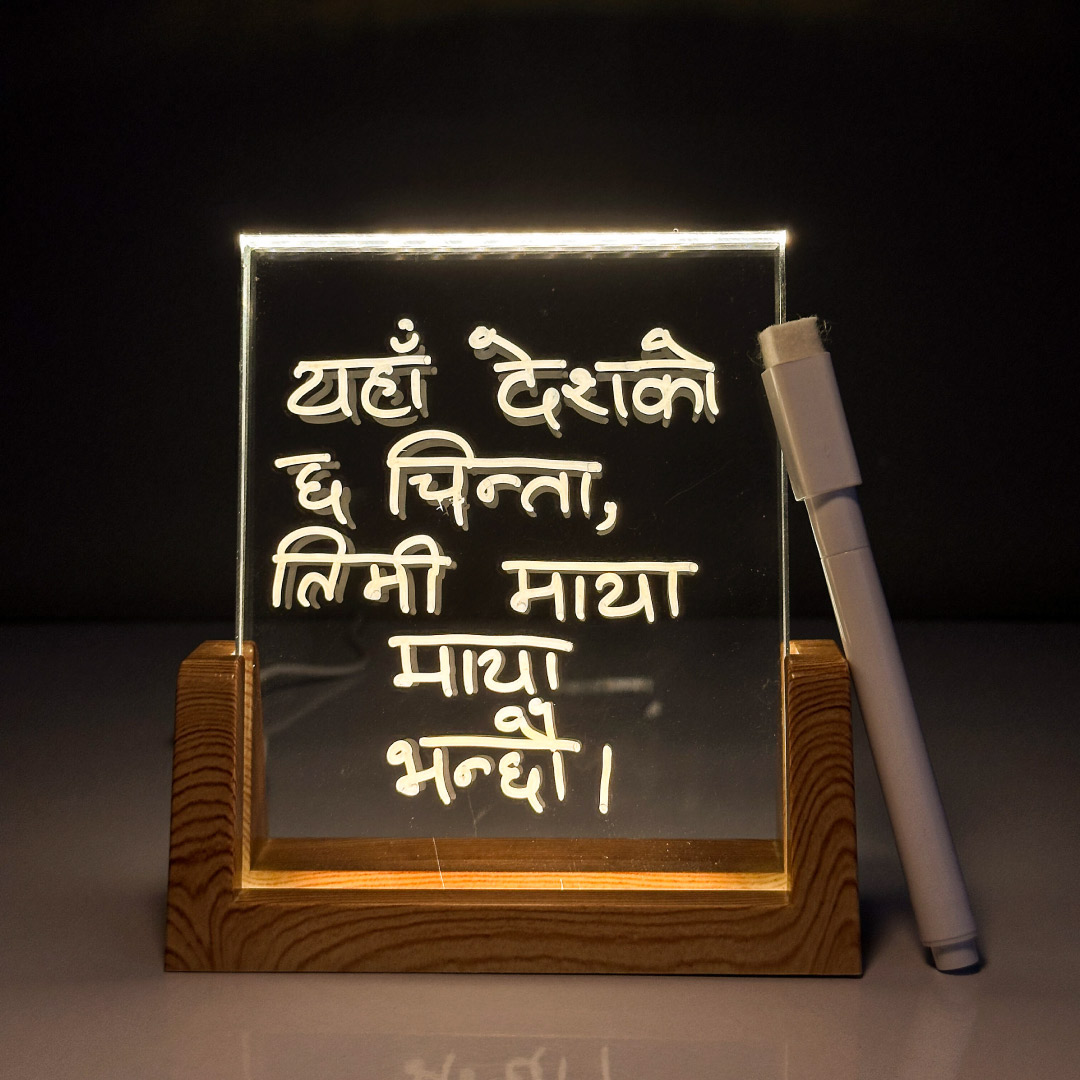 यहाँ देशको
छ चिन्ता,
तिमी माया
माया
भन्छौ।